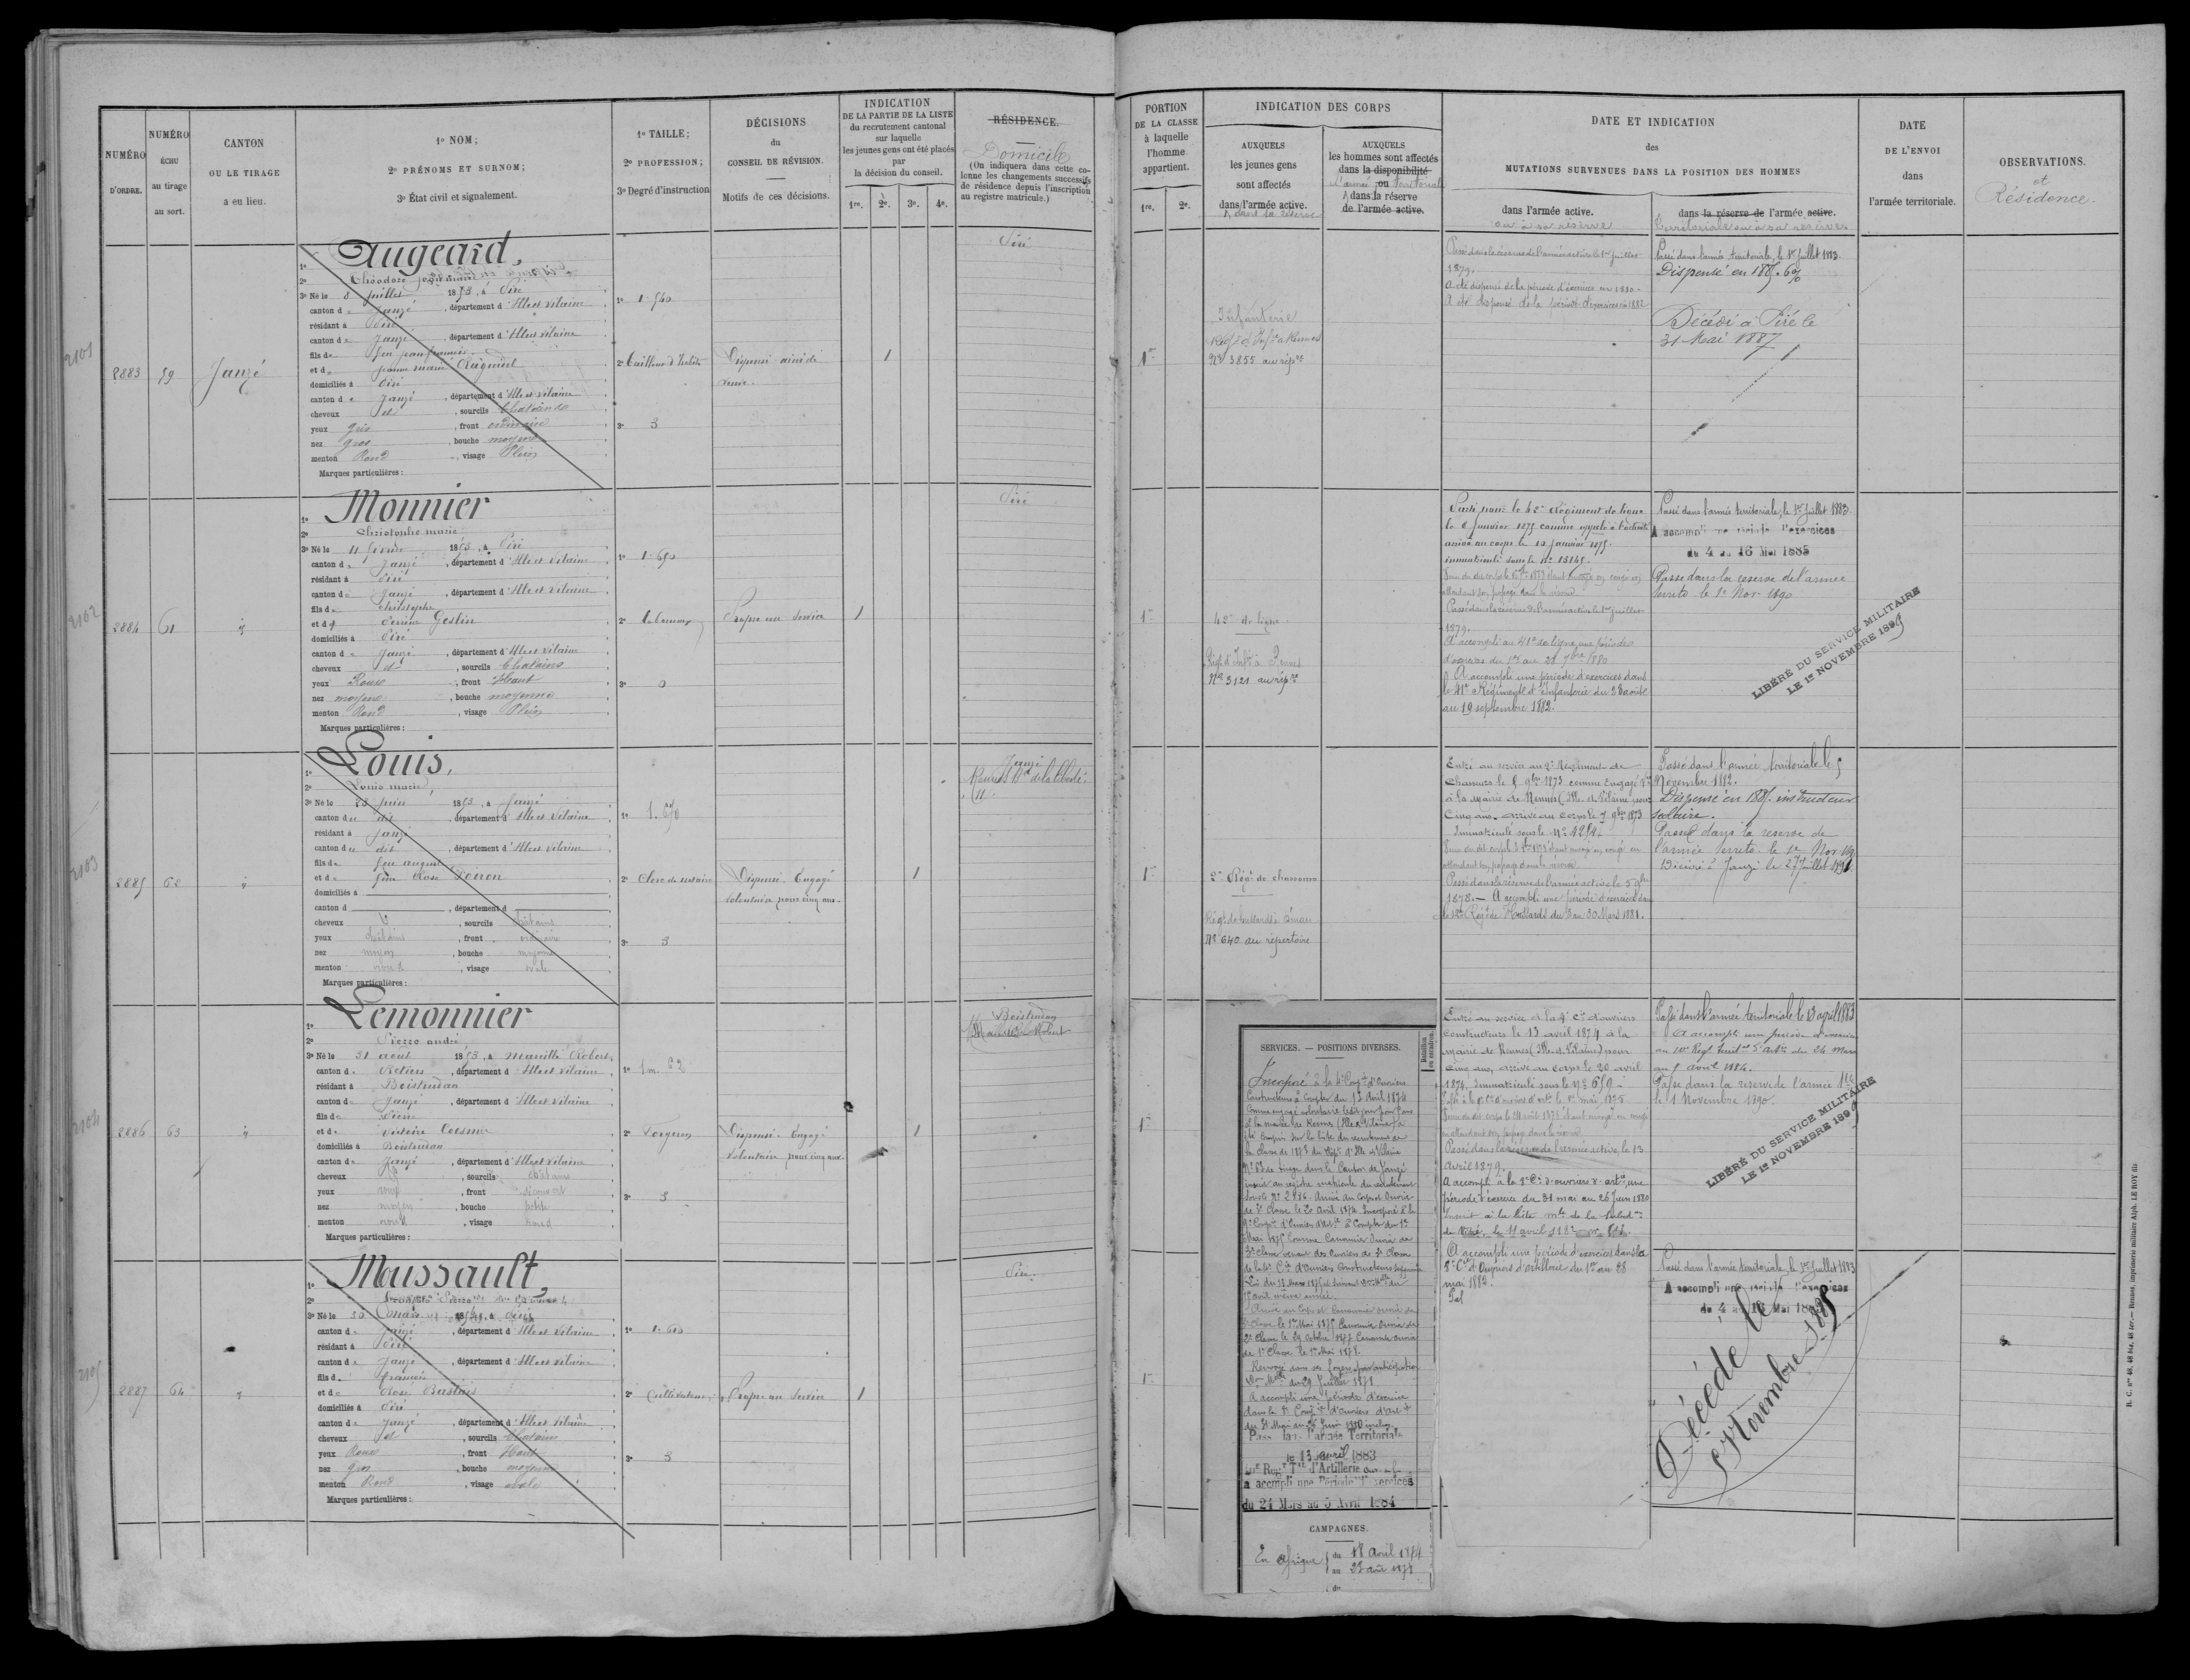 NUMÉRO
D'ORDRE.
NUMÉRO
ÉCHU
au tirage
au sort.
CANTON
OU LE TIRAGE
a eu lieu.
1º NOM;
2º PRÉNOMS ET SURNOM;
3º État civil et signalement.
1º TAILLE;
2º PROFESSION;
3º Degré d'instruction
DÉCISIONS
du
CONSEIL DE RÉVISION.
Motifs de ces décisions.
INDICATION
DE LA PARTIE DE LA LISTE
du recrutement cantonal
sur laquelle
les jeunes gens ont été placés
par
la décision du conseil.
1re. 2e. 3e. 4e.
RÉSIDENCE.
Domicile
(On indiquera dans cette co-
lonne les changements successifs
de résidence depuis l'inscription
au registre matricule.)
PORTION
DE LA CLASSE
à laquelle
l'homme
appartient.
1re. 2e.
INDICATION DES CORPS
AUXQUELS
les jeunes gens
sont affectés
dans l'armée active.
& dans la réserve
AUXQUELS
les hommes sont affectés
dans la disponibilité
l'armée ou territoriale
dans la réserve
de l'armée active.
DATE ET INDICATION
des
MUTATIONS SURVENUES DANS LA POSITION DES HOMMES
dans l'armée active.
ou à sa réserve
dans la réserve de l'armée active.
territoriale ou à sa réserve
DATE
DE L'ENVOI
dans
l'armée territoriale.
OBSERVATIONS.
et
Résidence.
2101
2883 59 Janzé
1º Augeard,
2º Théodore
3º Né le 8 juillet 1853, à Piré
canton de Janzé, département d'Ille et Vilaine
résidant à Piré
canton de Janzé, département d'Ille et Vilaine
fils de feu jean françois
et de jeanne marie
domiciliés à Piré
canton de Janzé, département d'Ille et Vilaine
cheveux et, sourcils Chatains
yeux gris, front ordinaire
nez gros, bouche moyenne
menton Rond, visage Plein
Marques particulières:
1º 1.540
2º Tailleur d'habits
3º 3
Dispensé ainé de
veuve.
1
Piré
1re
Infanterie
Nº 3855 au répre
Passé dans la réserve de l'armée active le 1er juillet
1879.
A été dispensé de la période d'exercices en 1880.
A été dispensé de la période d'exercices en 1882
Passé dans l'armée territoriale, le 1er Juillet 1883.
Dispensé en 1885.
Décédé à Piré le
31 Mai 1887
2102
2884 61 id
1º Monnier
2º Christophe marie
3º Né le 11 février 1853, à Piré
canton de Janzé, département d'Ille et Vilaine
résidant à Piré
canton de Janzé, département d'Ille et Vilaine
fils de Christophe
et de Perrine Geslin
domiciliés à Piré
canton de Janzé, département d'Ille et Vilaine
cheveux et, sourcils Chatains
yeux Roux, front Haut
nez moyen, bouche moyenne
menton Rond, visage Plein
Marques particulières:
1º 1.650
2º Laboureur
3º 0
Propre au service
1
Piré
1re
42e de ligne
Régt d'Infie à Rennes
Nº 3121 au répre
Parti pour le 42e Régiment de ligne
le 8 Janvier 1875 comme appelé à l'activité
arrivé au corps le 12 janvier 1875.
immatriculé sous le Nº 13145.
attendant son passage dans la réserve
Passé dans la réserve de l'armée active le 1er juillet
1879.
A accompli au 41e de ligne une période
d'exercices du 1er au 28 7bre 1880
A accompli une période d'exercices dans
le 41e Régiment d'Infanterie du 23 août
au 19 septembre 1882.
Passé dans l'armée territoriale, le 1er Juillet 1883.
A accompli une période d'exercices
du 4 au 16 Mai 1885
Passé dans la réserve de l'armée
territe le 1er Nov. 1890
LIBÉRÉ DU SERVICE MILITAIRE
LE 1er NOVEMBRE 1899
2103
2885 62 id
1º Louis,
2º Louis marie
3º Né le 23 juin 1853, à Janzé
canton du dit, département d'Ille et Vilaine
résidant à Janzé
canton du dit, département d'Ille et Vilaine
fils de feu auguste
et de feue Rose Poiron
domiciliés à
canton d , département d
cheveux et, sourcils châtains
yeux châtains, front ordinaire
nez moyen, bouche moyenne
menton rond, visage ovale
Marques particulières:
1º 1.670
2º Clerc de notaire
3º 3
Dispensé Engagé
volontaire pour cinq ans.
1
Janzé
Rennes Bd de la liberté
11
1re
2e Régt de chasseurs
Régt de hussards à Dinan
Nº 640 au répertoire
Entré au service au 2e Régiment de
chasseurs le 5 9bre 1873 comme Engagé Vre
à la mairie de Rennes (Ille et Vilaine) pour
Cinq ans. arrivé au corps le 7 9bre 1873
Immatriculé sous le Nº 1284.
attendant son passage dans la réserve.
Passé dans la réserve de l'armée active le 5 9bre
1878. A accompli une période d'exercices dans
le 12e Régt de Hussards du 3 au 30 Mars 1881.
Passé dans l'armée territoriale le 5
Novembre 1882.
Dispensé en 1885. instructeur
militaire.
Passé dans la réserve de
l'armée territe le 1er Nov. 1890
Décédé à Janzé le 27 Juillet 1891.
2104
2886 63 id
1º Lemonnier
2º Pierre andré
3º Né le 31 août 1853, à Marcillé Robert
canton de Retiers, département d'Ille et Vilaine
résidant à Boistrudan
canton de Janzé, département d'Ille et Vilaine
fils de Pierre
et de Victoire Coesmes
domiciliés à Boistrudan
canton de Janzé, département d'Ille et Vilaine
cheveux et, sourcils châtains
yeux roux, front découvert
nez moyen, bouche petite
menton rond, visage rond
Marques particulières:
1º 1m 62
2º Forgeron
3º 3
Dispensé Engagé
volontaire pour cinq ans.
1
Boistrudan
Marcillé Robert
1re
SERVICES. — POSITIONS DIVERSES.
Bataillon
ou escadron
Incorporé à la 4e Compie d'Ouvriers
Constructeurs à Compter du 13 Avril 1874
Comme engagé volontaire ledit jour pour 5 ans
à la mairie de Rennes (Ille et Vilaine) a
été compris sur la liste du recrutement de
la classe de 1873 du dépt d'Ille et Vilaine
Nº 63 de tirage dans le Canton de Janzé
inscrit au registre matricule du recrutement
sous le Nº 2886. Arrivé au Corps et Ouvrier
de 3e Classe le 20 Avril 1874. Incorporé à la
à Compter du 1er
Mai 1875 Comme Canonnier Ouvrier de
3e Classe venant des Ouvriers de 3e Classe
de la 4e Cie d'Ouvriers Constructeurs
Loi du 13 Mars 1875
avril même année.
Arrivé au Corps et Canonnier ouvrier de
3e Classe le 1er Mai 1875 Canonnier Ouvrier de
2e Classe le 29 Octobre 1877 Canonnier ouvrier
de 1e Classe le 1er Mai 1878.
Renvoyé dans ses foyers par anticipation
du 29 Juillet 1878
A accompli une période d'exercice
dans la Compie d'ouvriers d'artie
du 31 Mai au 26 Juin 1880 inclus.
Passé dans l'armée Territoriale
le 13 avril 1883
Régt Tal d'Artillerie
a accompli une Période d'exercices
du 24 Mars au 5 Avril 1884
CAMPAGNES.
En Afrique { du 18 avril 1874
au 23 août 1878
du
Entré au service à la 4e Cie d'ouvriers
constructeurs le 13 avril 1874 à la
mairie de Rennes (Ille et Vilaine) pour
cinq ans, arrivé au corps le 20 avril
1874, Immatriculé sous le Nº 659
en attendant son passage dans la réserve
Passé dans la réserve de l'armée active, le 13
Avril 1879.
A accompli à la Cie d'ouvriers d'artie, une
période d'exercice du 31 mai au 26 Juin 1880
A accompli une période d'exercices dans la
Cie d'Ouvriers d'artillerie du 1er au 28
mai 1882.
Passé dans l'armée territoriale le 13 avril 1883
A accompli une période d'exercices
au Régt territal d'artie du 24 mars
au 5 avril 1884.
Passé dans la réserve de l'armée tle
le 1 Novembre 1890.
LIBÉRÉ DU SERVICE MILITAIRE
LE 1er NOVEMBRE 1899
2105
2887 64 id
1º Moussault,
2º
3º Né le 30 mars 1853, à Piré
canton de Janzé, département d'Ille et Vilaine
résidant à Piré
canton de Janzé, département d'Ille et Vilaine
fils de françois
et de Rose
domiciliés à Piré
canton de Janzé, département d'Ille et Vilaine
cheveux et, sourcils Chatains
yeux Roux, front Haut
nez gros, bouche moyenne
menton Rond, visage ovale
Marques particulières:
1º 1.610
2º Cultivateur
3º 3
Propre au service
1
Piré
1re
Passé dans l'armée territoriale, le 1er Juillet 1883
A accompli une période d'exercices
du 4 au 16 Mai 1885
Décédé le
5 Novembre 1885
R. C. nos 46, 48 bis, 48 ter. — Rennes, imprimerie militaire Alph. LE ROY fils